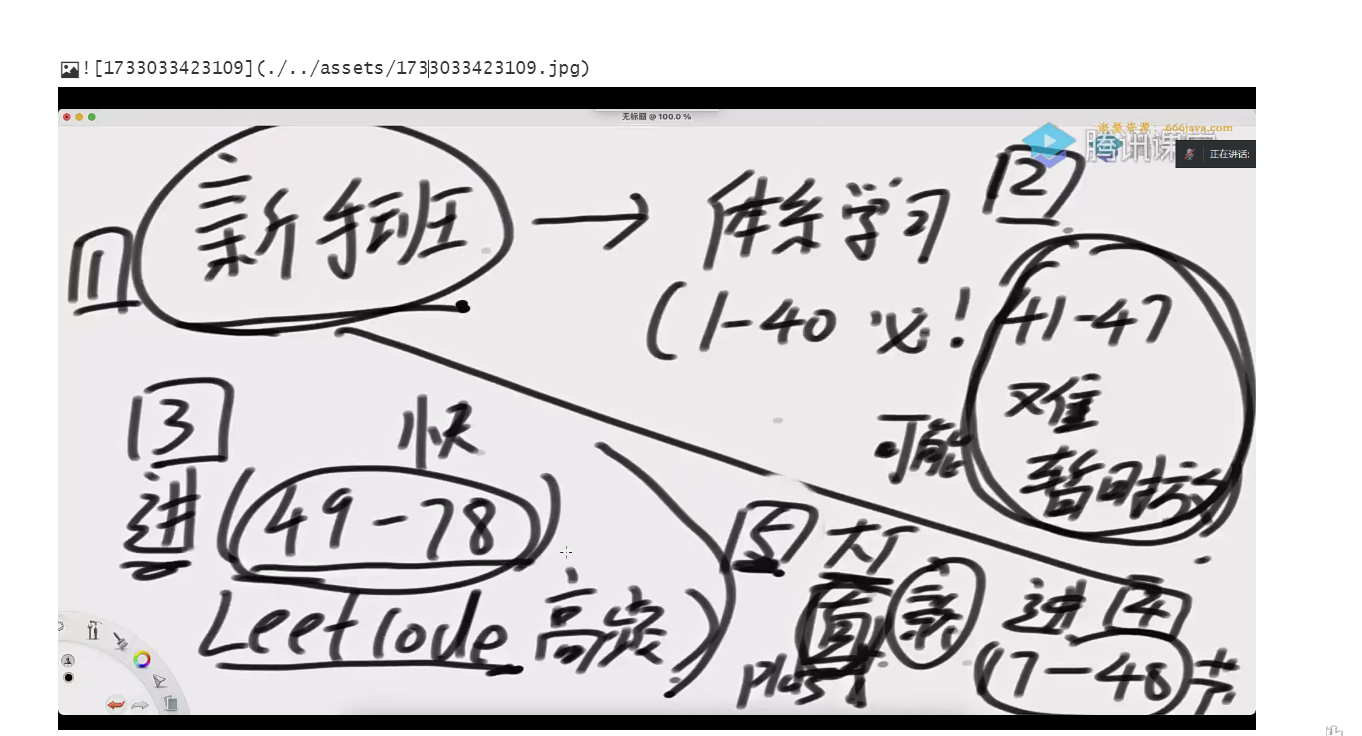 ![1733033423109](./../assets/1733033423109.jpg)
无标题 @ 100.0 %
海量资源：666java.com
腾讯课堂
正在讲话:
1 新手班 → 体系学习 2
(1-40 必! 41-47
难
可能 暂时放
3 快
进 (49-78)
Leetcode 高频)
5 大厂
直 新 进 4
plus 17-48 节